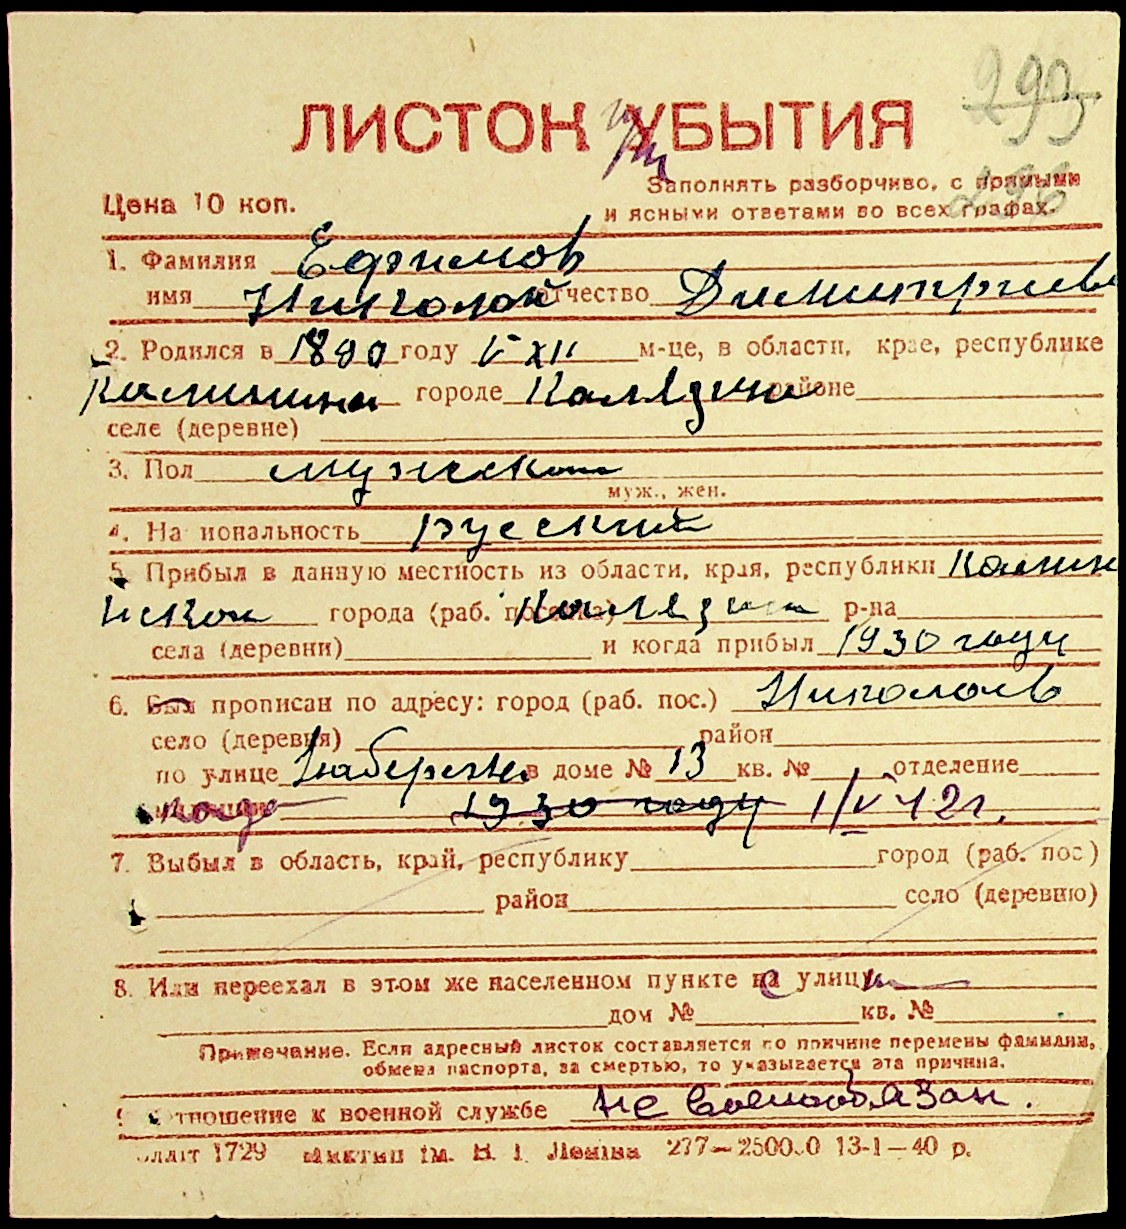 299
ЛИСТОК УБЫТИЯ
при
296
Цена 10 коп.
Заполнять разборчиво, с прямыми
и ясными ответами во всех графах.
1. Фамилия Ефимов
имя Николай отчество Димитриев
2. Родился в 1890 году V XII м-це, в области, крае, республике
Калинина городе Калязине районе
селе (деревне)
3. Пол мужской
муж., жен.
4. Национальность русский
5. Прибыл в данную местность из области, края, республики Калин
инской города (раб. поселка) Калязин р-на
села (деревни) и когда прибыл 1930 году
6. Был прописан по адресу: город (раб. пос.) Николаев
село (деревня) район
по улице Набережн в доме № 13 кв. № отделение
когда 1930 году 1/V 42г.
7. Выбыл в область, край, республику город (раб. пос)
район село (деревню)
8. Или переехал в этом же населенном пункте на улицу
дом № кв. №
Примечание. Если адресный листок составляется по причине перемены фамилии,
обмена паспорта, за смертью, то указывается эта причина.
9. Отношение к военной службе не военнообязан.
1729 ім. В. І. Леніна 277—25000 13-1—40 р.